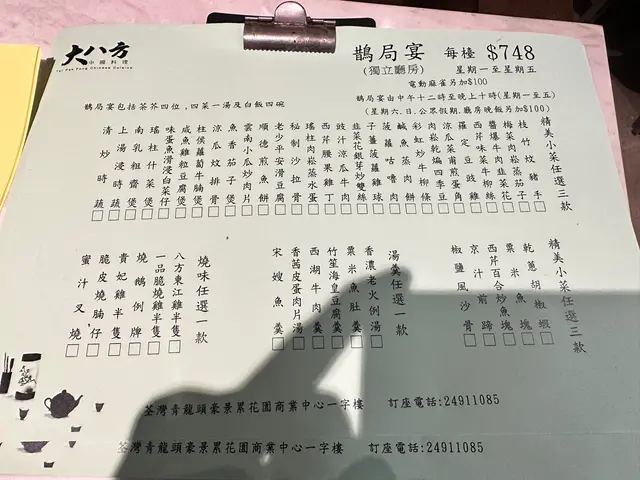 大八方
中國料理
Tai Pak Fong Chinese Cuisine
鵲局宴 每檯 $748
(獨立廳房) 星期一至星期五
電動麻雀另加$100
鵲局宴包括茶芥四位,四菜一湯及白飯四碗
鵲局宴由中午十二時至晚上十時(星期一至五)
(星期六.日.公眾假期.廳房晚飯另加$100)
精美小菜任選三款
枝竹炆豬手□
梅菜肉崧蒸茄子□
醬爆牛肉韭菜花□
西芹味菜豆豉柳絲□
涼瓜菜甫煎蛋角□
肉崧乾煸四季豆□
彩虹炒牛柳條□
鹹魚蒸肉餅□
菠蘿咕嚕肉□
子蘿菠蘿雞球□
韭菜花銀芽炒雙絲□
豉汁涼瓜牛肉□
西芹腰果雞丁□
瑤柱肉崧蒸水蛋□
秘制沙拉骨□
老少平安滑豆腐□
順德煎魚餅□
雲南小瓜炒肉片□
魚香茄子煲□
涼瓜炆排骨□
柱侯蘿蔔牛腩煲□
咸魚雞粒豆腐煲□
味蛋魚滑浸白菜仔□
瑤柱什菜煲□
南乳粗齋煲□
上湯浸時蔬□
清炒時蔬□
精美小菜任選三款
乾蔥胡椒蝦□
粟米魚塊□
西芹百合炒魚塊□
京汁煎蹄□
椒鹽風沙骨□
湯羹任選一款
香濃老火例湯□
粟米魚肚羹□
竹笙海皇豆腐羹□
西湖牛肉羹□
香茜皮蛋肉片湯□
宋嫂魚羹□
燒味任選一款
八方東江雞半隻□
一品脆燒雞半隻□
燒鵝例牌□
貴妃雞半隻□
脆皮燒腩仔□
蜜汁叉燒□
荃灣青龍頭豪景累花園商業中心一字樓 訂座電話:24911085
荃灣青龍頭豪景累花園商業中心一字樓 訂座電話:24911085